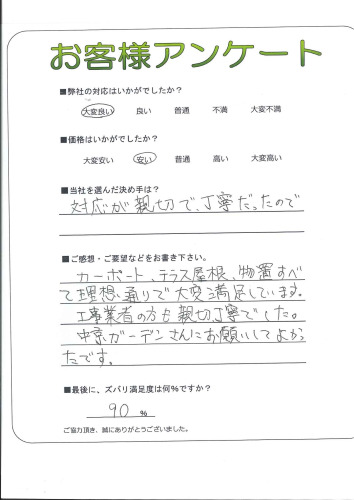 お客様アンケート
■弊社の対応はいかがでしたか?
大変良い 良い 普通 不満 大変不満
■価格はいかがでしたか?
大変安い 安い 普通 高い 大変高い
■当社を選んだ決め手は?
対応が親切で、丁寧だったので
■ご感想・ご要望などをお書き下さい。
カーポート、テラス屋根、物置すべ
て理想通りで大変満足しています。
工事業者の方も親切丁寧でした。
中京ガーデンさんにお願いしてよかっ
たです。
■最後に、ズバリ満足度は何%ですか?
90 %
ご協力頂き、誠にありがとうございました。